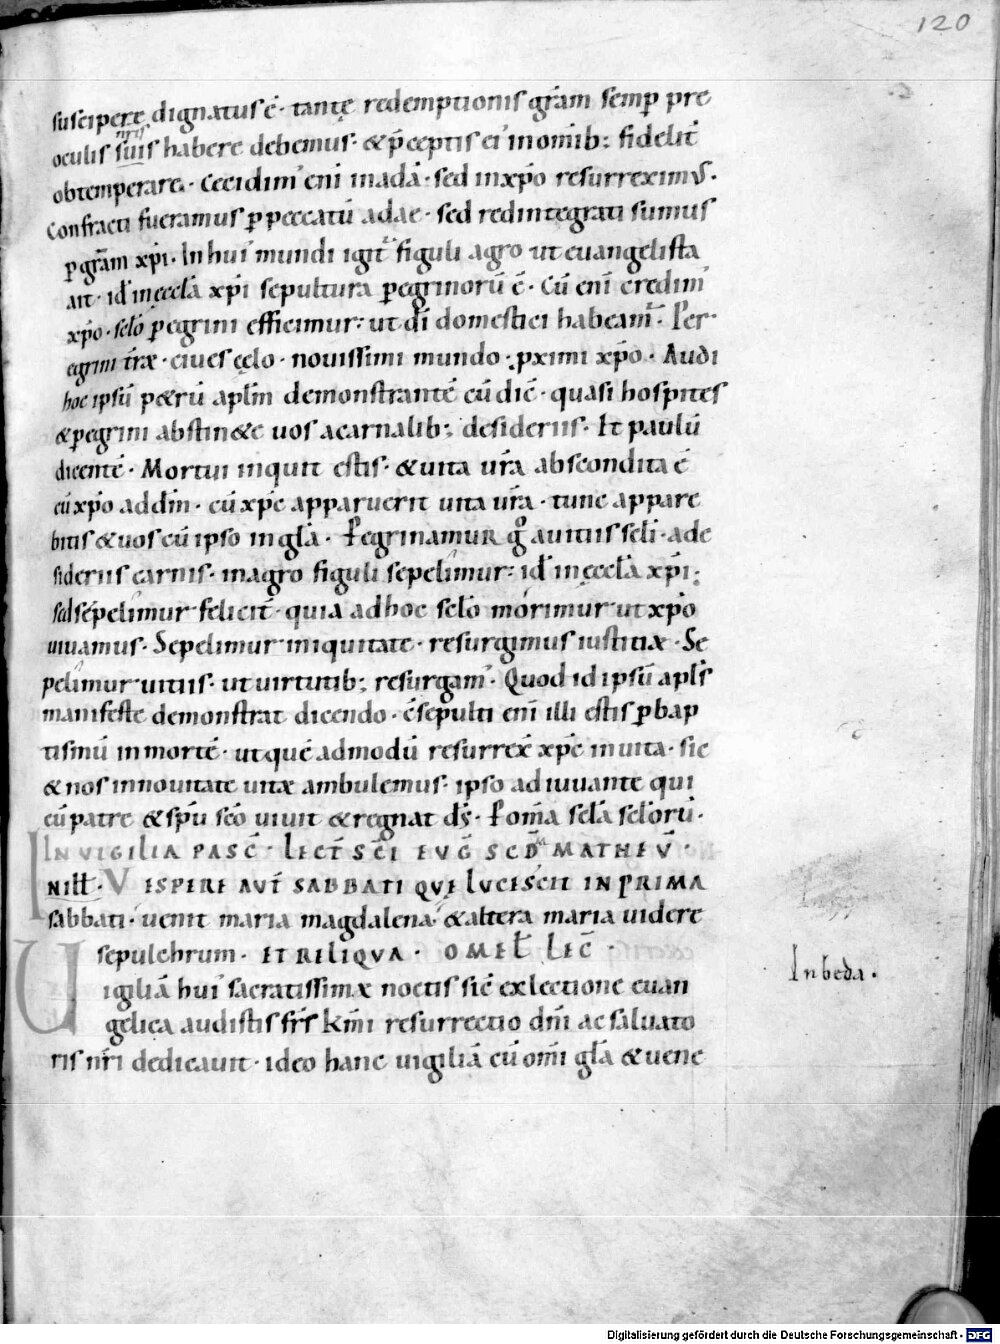 120
suscipere dignatus ē· tantę redemptionis grām semp pre
nr̄is
oculis suis habere debemus· & p̄ceptis ei' in omīb; fidelit̄
obtemperare· Cecidim' enī in adā· sed in xp̄o resurreximus·
Confracti fueramus p peccatū adae· sed redintegrati sumus
p grām xp̄i· In hui' mundi igit̄ figuli agro ut euangelista
ait· id' in ęccla xp̄i sepultura peregrinorū ē· Cū enī credim'
xp̄o· sclo peregrini efficimur· ut dī domestici habeam̄· Per-
egrini t̄rae· ciues cęlo· nouissimi mundo· pximi xp̄o· Audi
hoc ipsū petrū aplm̄ demonstrantē cū dic̄· quasi hospites
& peregrini abstin&e uos a carnalib; desideriis· Et paulū
dicentē· Mortui inquit estis· & uita ur̄a abscondita ē
cū xp̄o ad dm̄· cū xp̄c apparuerit uita ur̄a· tunc appare
bitis & uos cū ipso in gla· Peregrinamur g̊ a uitiis scli· a de
sideriis carnis· in agro figuli sepelimur· id' in ęccla xp̄i;
sed sepelimur felicit̄· quia ad hoc sclo morimur ut xp̄o
uiuamus· Sepelimur iniquitate· resurgimus iustitiæ· Se
pelimur uitiis· ut uirtutib; resurgam'· Quod id ipsū apls̄
manifeste demonstrat dicendo· c̄sepulti enī illi estis p bap
tismū in mortē· ut quē admodū resurrex̄ xp̄c in uita· sic
& nos in nouitate uitæ ambulemus· ipso adiuuante qui
cū patre & sp̄u sc̄o uiuit & regnat ds̄· P om̄a scla sclorū·
IN VIGILIA PASC̄· LECT̄ SC̄I EVḠ SCD̄M MATHEV̄·
N ILL̄· VESPERE AUT̄ SABBATI QVE LUCISCIT IN PRIMA
sabbati· uenit maria magdalena· & altera maria uidere
sepulchrum· ET RILIQVA· OMEL̄ LEC̄·
Uigiliā hui' sacratissimæ noctis sic̄ ex lectione euan
gelica audistis fr̄s km̄i resurrectio dn̄i ac saluato
In beda·
ris nr̄i dedicauit· ideo hanc uigiliā cū om̄i gla & uene
Digitalisierung gefördert durch die Deutsche Forschungsgemeinschaft - DFG